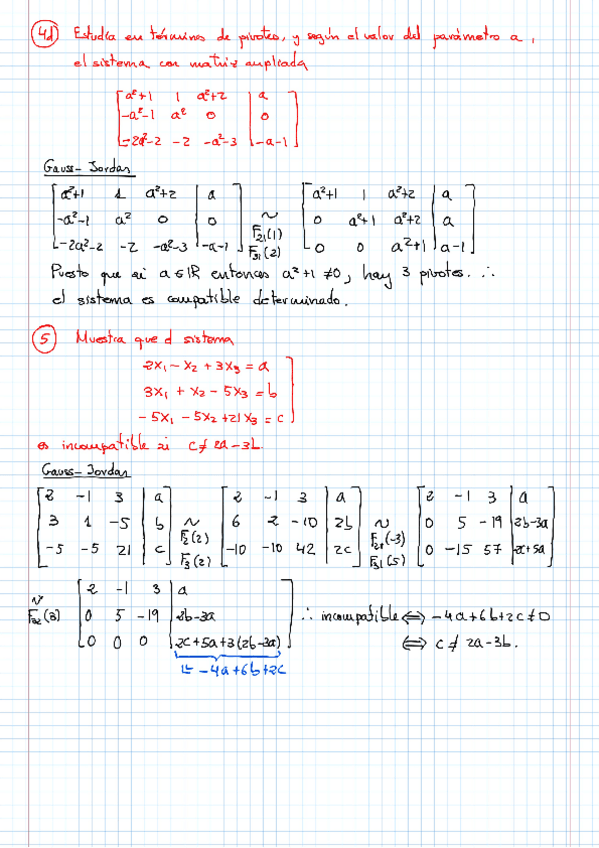 4d) Estudia en términos de pivotes, y según el valor del parámetro a,
el sistema con matriz ampliada
[ a²+1 1 a²+2 | a ]
[ -a²-1 a² 0 | 0 ]
[ -2a²-2 -2 -a²-3 | -a-1 ]
Gauss-Jordan
[ a²+1 1 a²+2 | a ] [ a²+1 1 a²+2 | a ]
[ -a²-1 a² 0 | 0 ] ~ F21(1) [ 0 a²+1 a²+2 | a ]
[ -2a²-2 -2 -a²-3 | -a-1 ] F31(2) [ 0 0 a²+1 | a-1 ]
Puesto que si a∈ℝ entonces a²+1≠0, hay 3 pivotes. ∴
el sistema es compatible determinado.
5) Muestra que el sistema
2x₁ - x₂ + 3x₃ = a
3x₁ + x₂ - 5x₃ = b
-5x₁ - 5x₂ + 21x₃ = c
es incompatible si c ≠ 2a-3b.
Gauss-Jordan
[ 2 -1 3 | a ] [ 2 -1 3 | a ] [ 2 -1 3 | a ]
[ 3 1 -5 | b ] ~ F2(2) [ 6 2 -10 | 2b ] ~ F21(-3) [ 0 5 -19 | 2b-3a ]
[ -5 -5 21 | c ] F3(2) [ -10 -10 42 | 2c ] F31(5) [ 0 -15 57 | 2c+5a ]
~ [ 2 -1 3 | a ]
F32(3) [ 0 5 -19 | 2b-3a ] ∴ incompatible ⟺ -4a+6b+2c≠0
[ 0 0 0 | 2c+5a+3(2b-3a) ] ⟺ c ≠ 2a-3b.
-4a+6b+2c